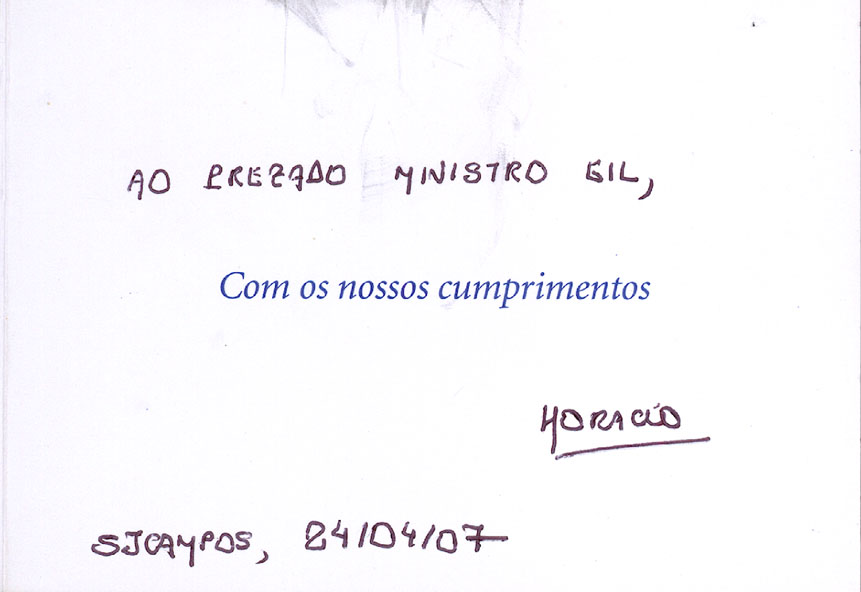 AO PREZADO MINISTRO GIL,
Com os nossos cumprimentos
HORACIO
SJCAMPOS, 24/04/07